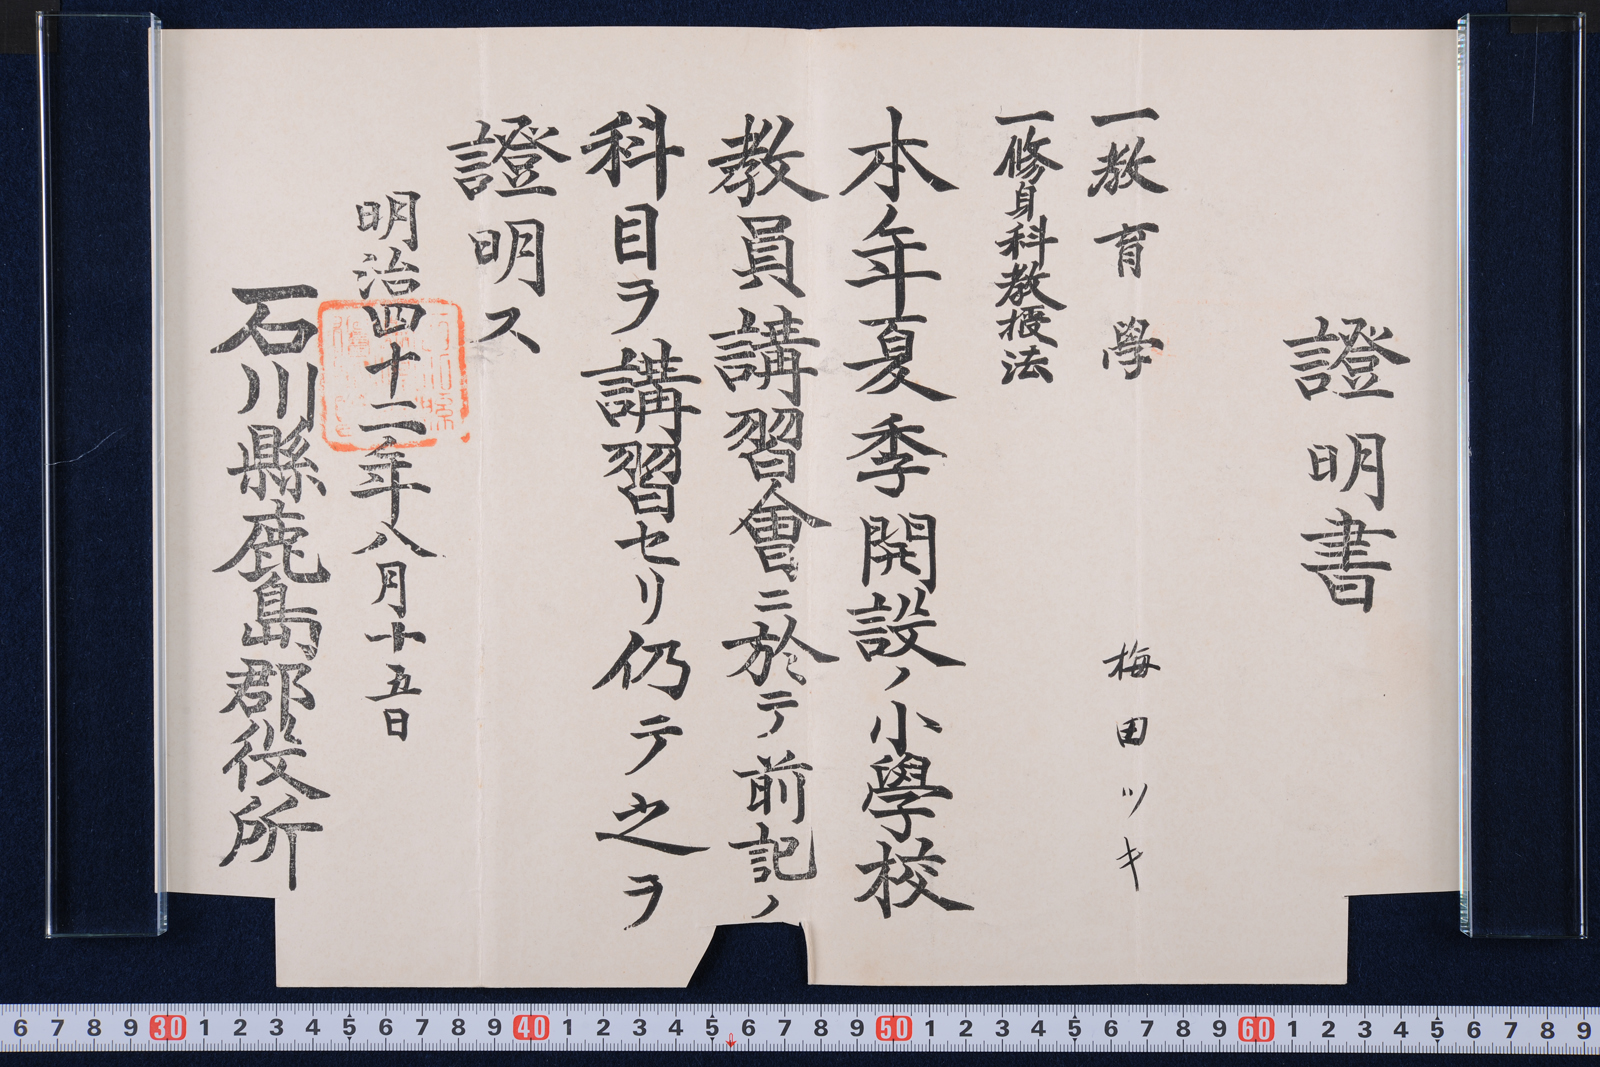 證明書
梅田ツキ
一教育學
一修身科教授法
本年夏季開設ノ小學校
教員講習會ニ於テ前記ノ
科目ヲ講習セリ仍テ之ヲ
證明ス
明治四十二年八月十五日
石川縣鹿島郡役所
6 7 8 9 30 1 2 3 4 5 6 7 8 9 40 1 2 3 4 5 6 7 8 9 50 1 2 3 4 5 6 7 8 9 60 1 2 3 4 5 6 7 8 9